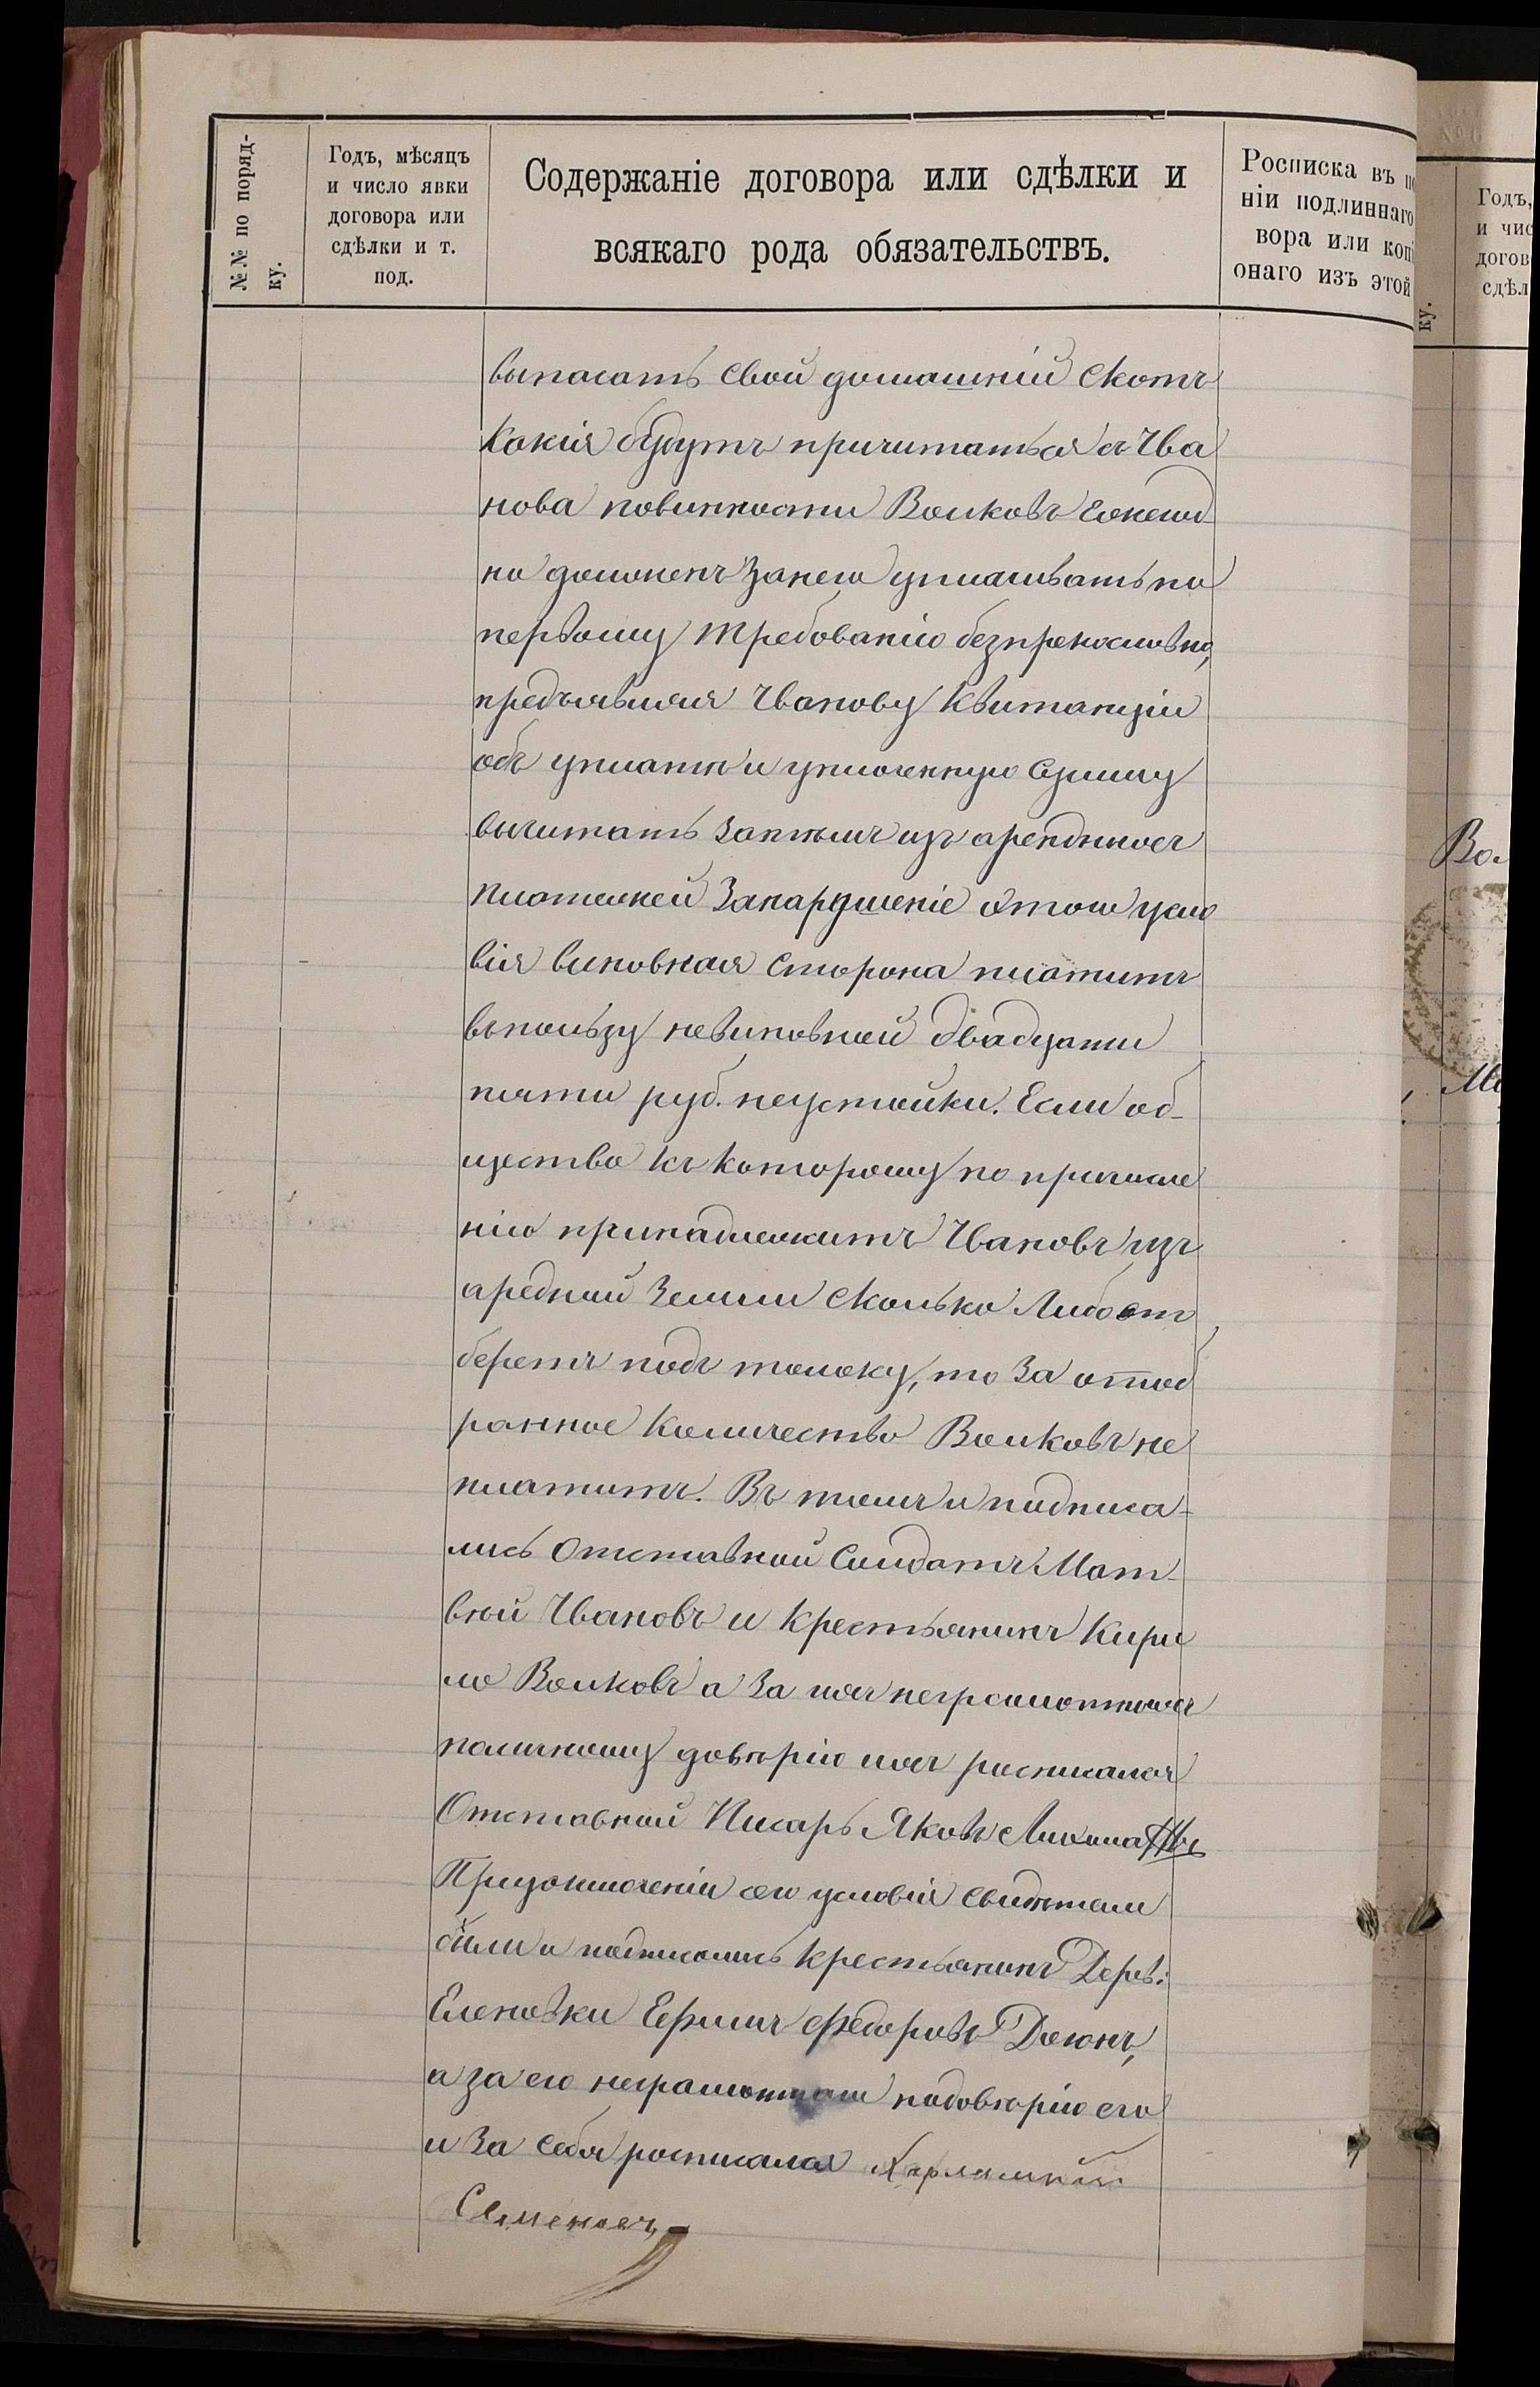 №№ по поряд-
ку.
Годъ, мѣсяцъ
и число явки
договора или
сдѣлки и т.
под.
Содержаніе договора или сдѣлки и
всякаго рода обязательствъ.
Росписка въ
ніи подлиннаго
вора или копі
онаго изъ этой
выпасать свой домашній скотъ
Какія будутъ причитаться съ Ива
нова повинности Волковъ Ежегод
но долженъ за него уплачивать по
первому требованію безпрекословно,
предъявляя Иванову Квитанціи
объ уплатѣ и уплоченную сумму
вычитать затѣмъ изъ арендныхъ
платежей За нарушеніе этого усло
вія виновная сторона платитъ
въ пользу невиновной двадцати
пяти руб. неустойки. Если об-
щество къ которому по причисле
нію принадлежитъ Ивановъ изъ
аредной земли сколько Либо от
беретъ подъ толоку, то за отоб
ранное Количество Волковъ не
платитъ. Въ томъ и подписа-
лись Отставной Солдатъ Мат-
вѣй Ивановъ и Крестьянинъ Кири
ло Волковъ а за ихъ неграмотныхъ
по личному довѣрію ихъ росписался
Отставной Писарь Яковъ
При заключеніи сего условія свидѣтели
были и подписались Крестьянинъ Дерев:
Еленовки Ефимъ Федоровъ
а за его неграмотнаго по довѣрію его
и за себя росписался
Семеновъ
ку.
Годъ,
и чис
догов
сдѣл